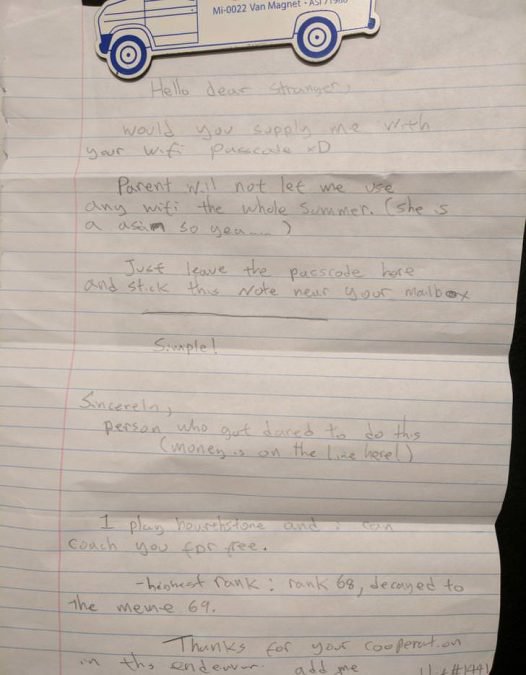 Mi-0022 Van Magnet - ASI 71980
Hello dear Stranger,
would you supply me with
your wifi passcode xD
Parent will not let me use
any wifi the whole summer. (she is
a asian so yea....)
Just leave the passcode here
and stick this Note near your mailbox
Simple!
Sincereln,
person who got dared to do this
(money is on the line here!)
I play hearthstone and i can
coach you for free.
-highest rank: rank 68, decayed to
the meme 69.
Thanks for your cooperation
in ths endevur. add me #1441